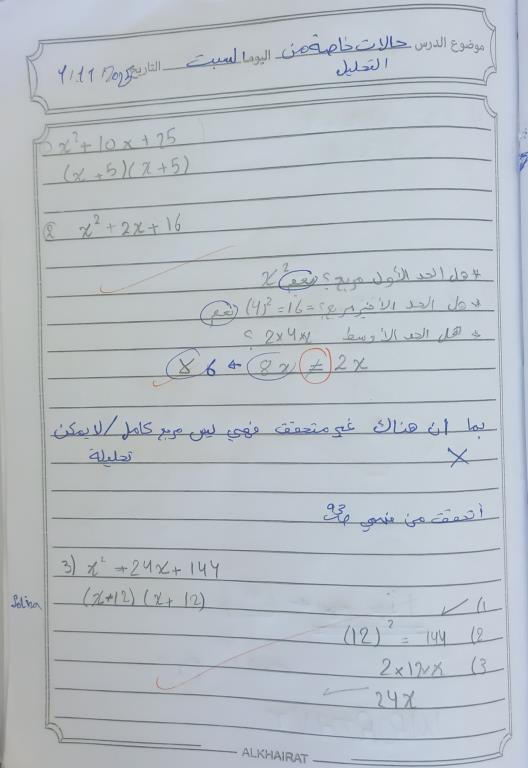 موضوع الدرس حالات خاصة من اليوم السبت التاريخ
التحليل
x² + 10x + 25
(x + 5)(x + 5)
② x² + 2x + 16
* هل الحد الأول مربع؟ نعم x²
* هل الحد الأخير مربع؟ = 16 = (4)² نعم
* هل الحد الأوسط 2x4xx ؟
لا ← 8x ≠ 2x
بما ان هناك غير متحقق فهي ليس مربع كامل / لا يمكن
تحليلة
أتحقق من فهمي ص93
3) x² + 24x + 144
(x+12) (x + 12)
(1 ✓
(12)² = 144 (2
2x12xx (3
24x
ALKHAIRAT